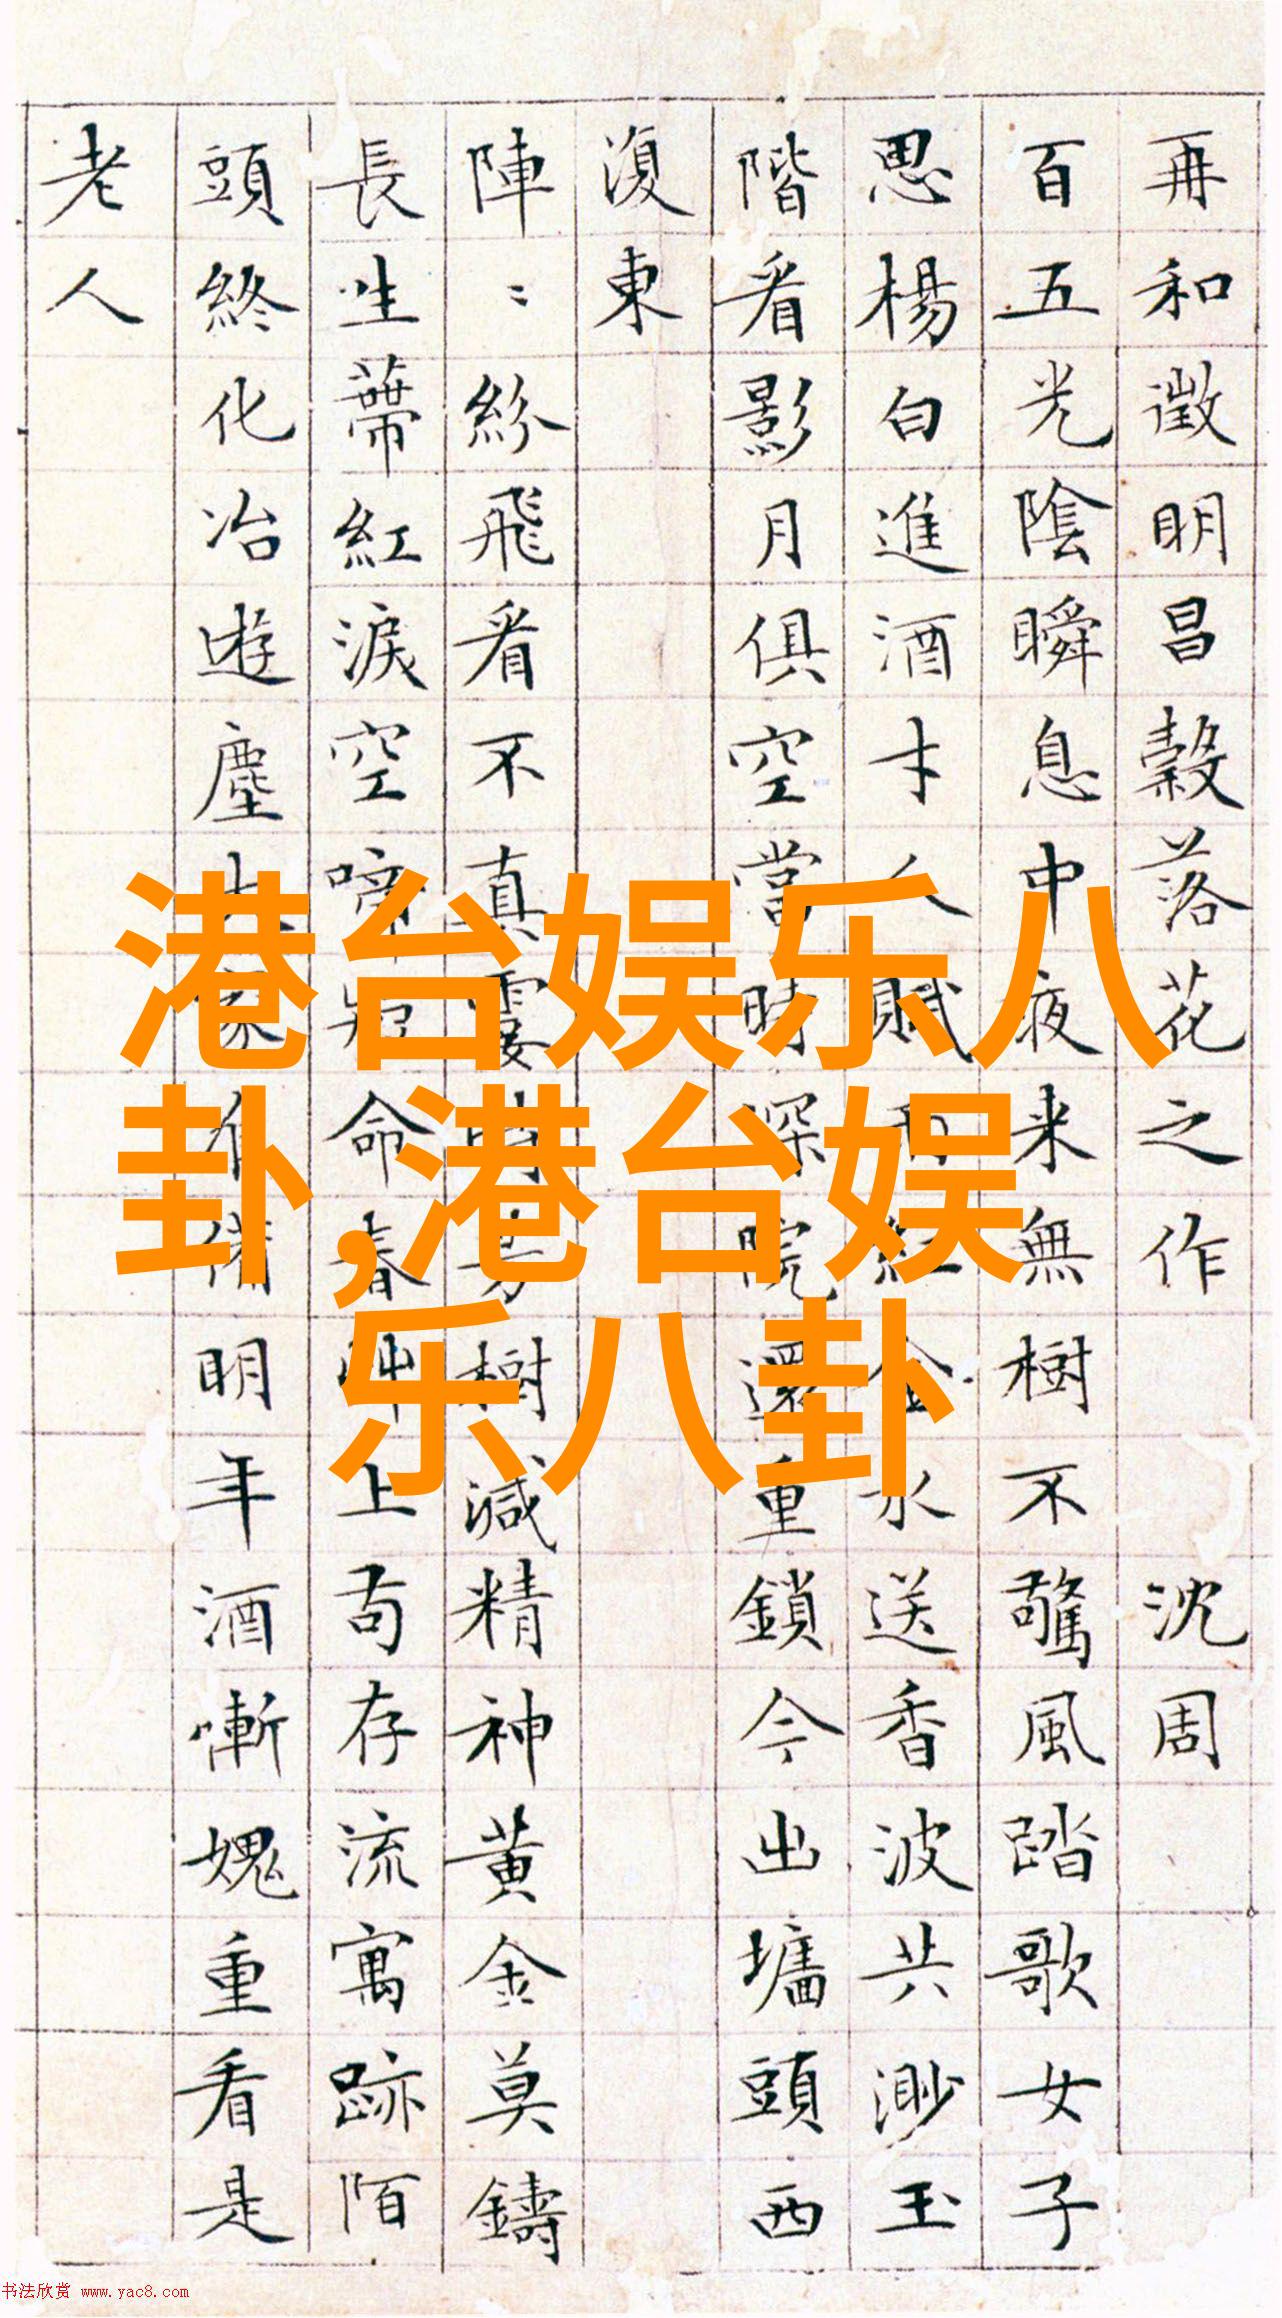 再和徵明昌穀落花之作 沈周
百五光陰瞬息中夜来無樹不驚風踏歌女子
思楊白進酒才人賦 金水送香波共渺玉
階看影月俱空當時深院還重鎖今出墻頭西
復東
陣〻紛飛看不真霎 芳樹減精神黄金莫鑄
長生蒂紅淚空啼 命春 上苟存流寓跡陌
頭終化冶遊塵大家准備明年酒慚愧重看是
老人
港台娱乐八
卦,港台娱
乐八卦
书法欣赏 www.yac8.com